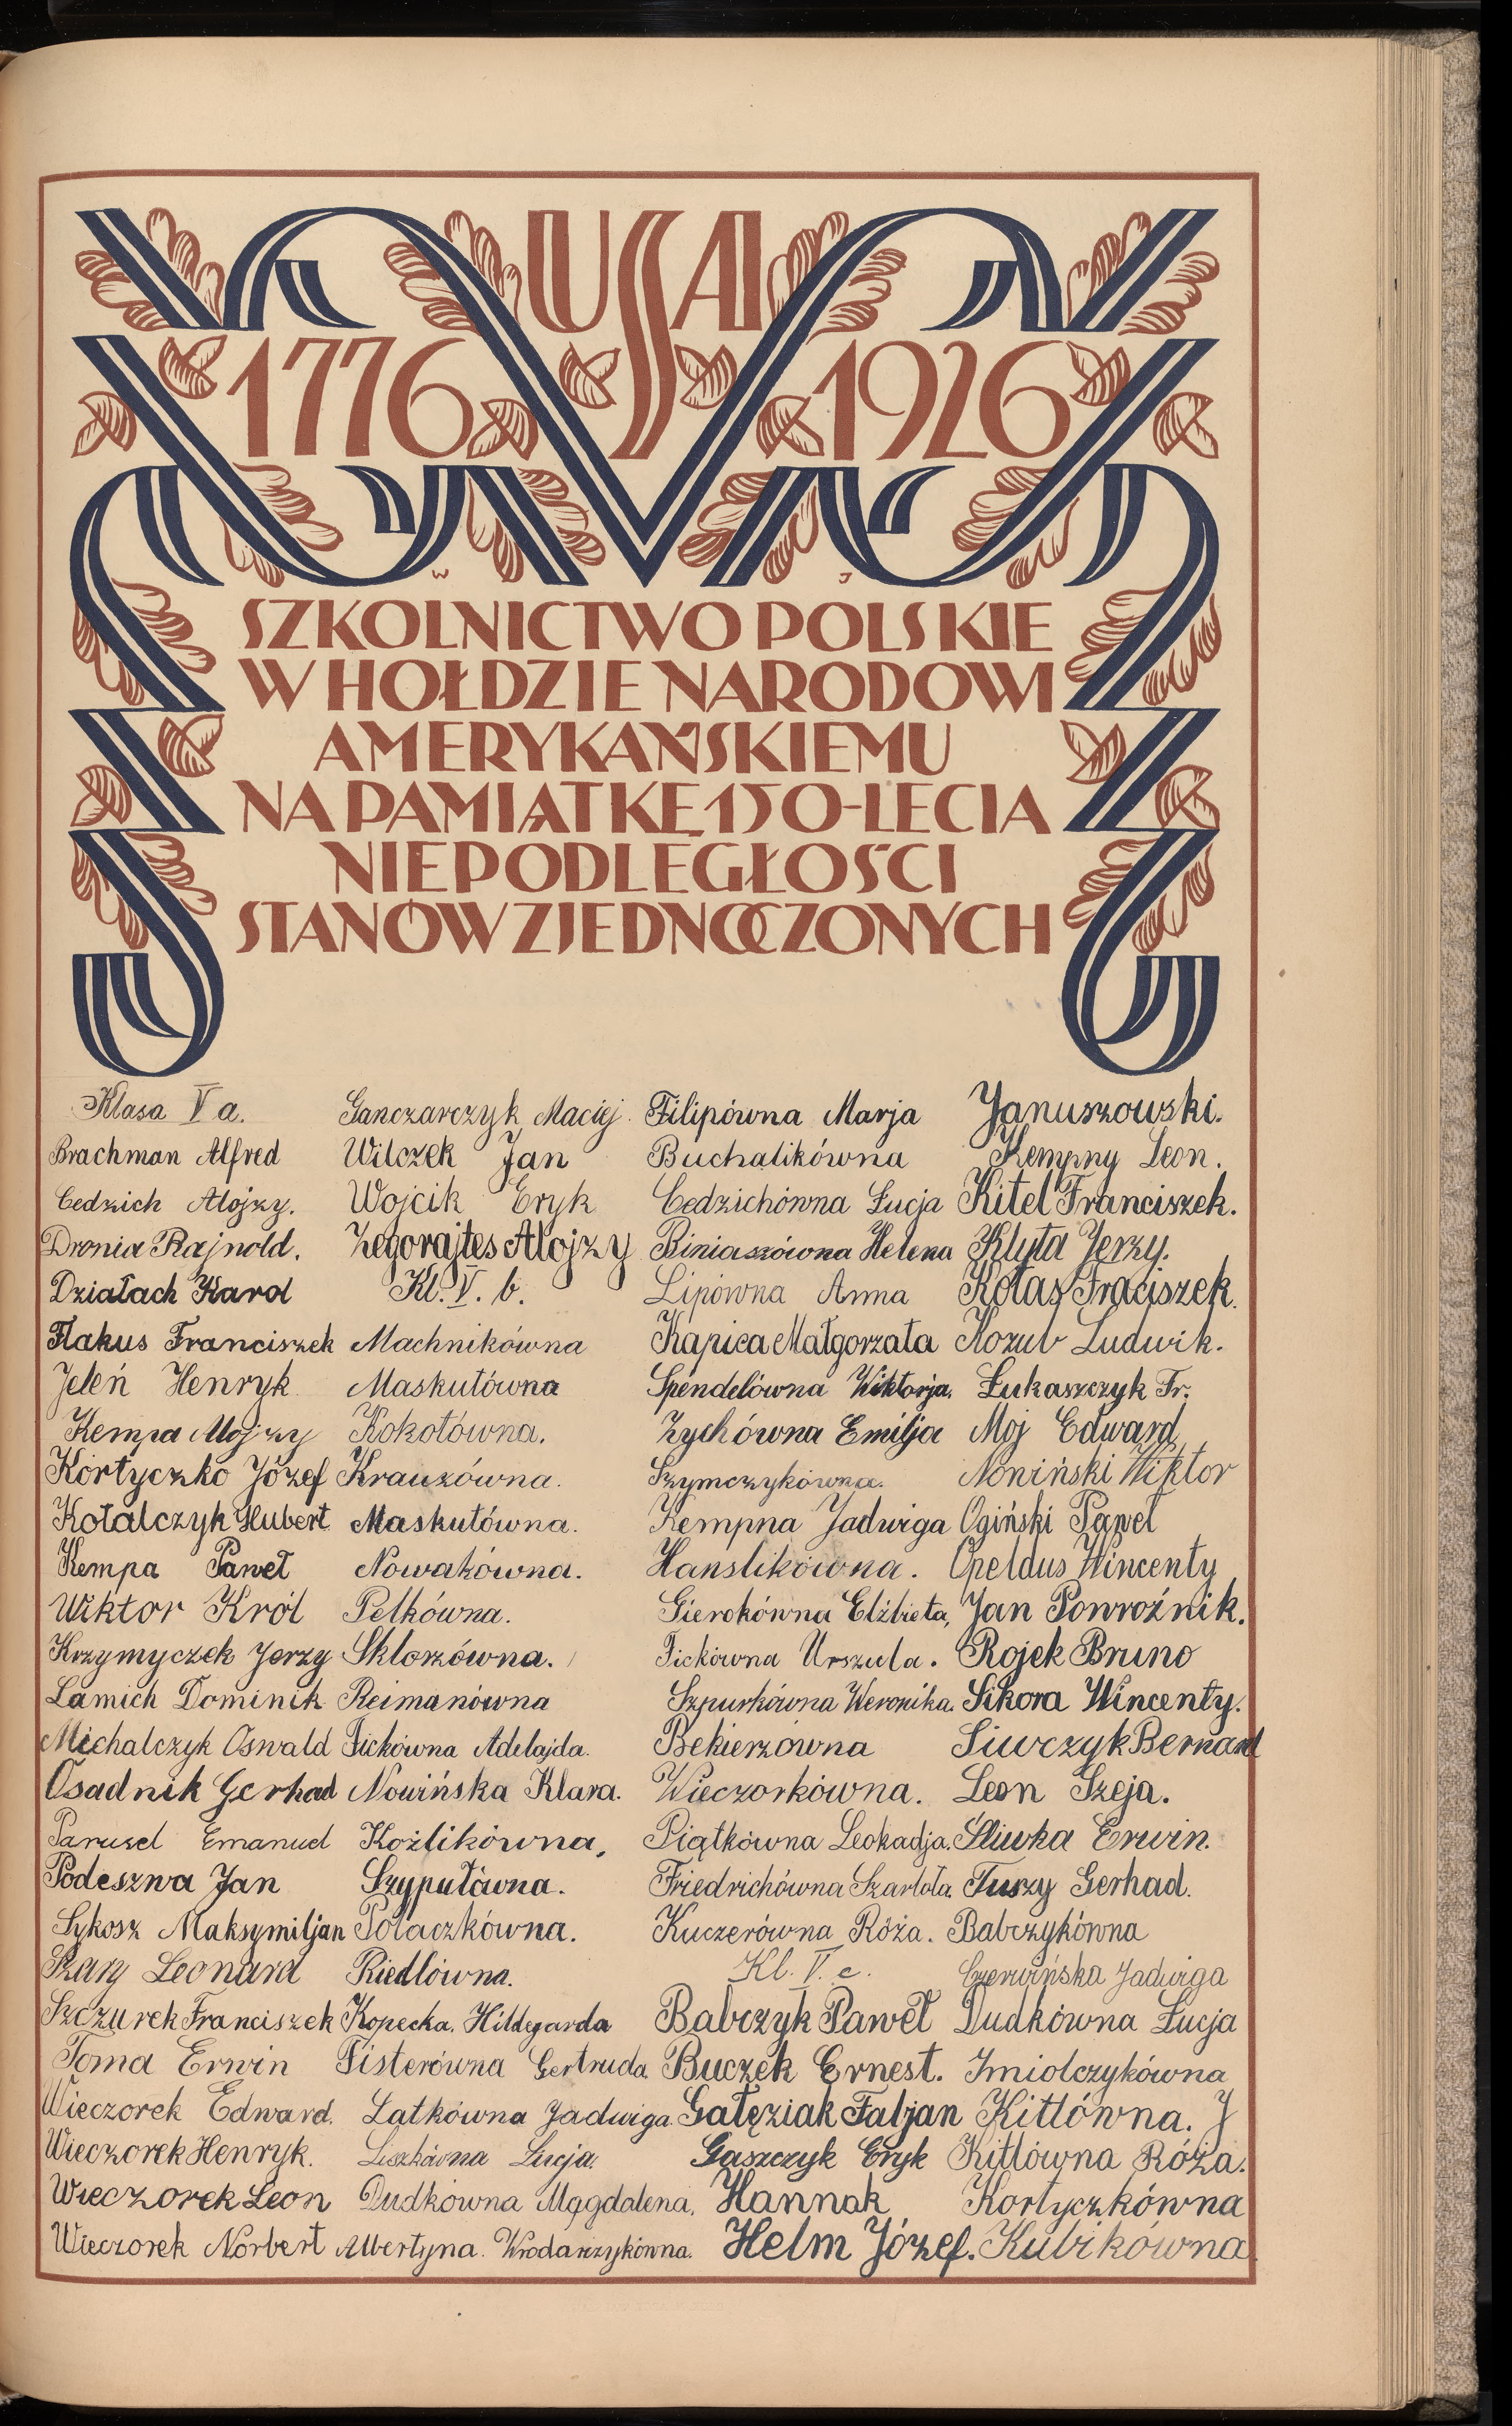 USA
1776 1926
W J
SZKOLNICTWO POLSKIE
W HOŁDZIE NARODOWI
AMERYKAŃSKIEMU
NA PAMIĄTKĘ 150-LECIA
NIEPODLEGŁOŚCI
STANÓW ZJEDNOCZONYCH
Klasa V a.
Brachman Alfred
Cedzich Alojzy.
Dronia Rajnold.
Działach Karol
Flakus Franciszek
Jeleń Henryk
Kempa Alojzy
Kortyczko Józef
Kotalczyk Hubert
Kempa Paweł
Wiktor Król
Krzymyczek Jerzy
Lamich Dominik
Michalczyk Oswald
Osadnik Gerhad
Parusel Emanuel
Podeszwa Jan
Sykosz Maksymiljan
Szary Leonard
Szczurek Franciszek
Toma Erwin
Wieczorek Edward.
Wieczorek Henryk.
Wieczorek Leon
Wieczorek Norbert
Ganczarczyk Maciej.
Wilczek Jan
Wojcik Eryk
Zegorajtes Alojzy
Kl. V. b.
Machnikówna
Maskutówna
Kokotówna.
Krauzówna.
Maskutówna.
Nowakówna.
Pelkówna.
Sklorzówna.
Reimanówna
Fickówna Adelajda.
Nowińska Klara.
Koźlikówna,
Szypułówna.
Polaczkówna.
Riedlówna.
Kopecka. Hildegarda
Fisterówna Gertruda.
Latkówna Jadwiga.
Liszkówna Łucja.
Dudkówna Magdalena,
Albertyna. Wrodarczykówna.
Filipówna Marja
Buchalikówna
Cedzichówna Łucja
Biniaszówna Helena
Lipówna Anna
Kapica Małgorzata
Spendelówna Wiktorja.
Zychówna Emilja
Szymczykówna.
Kempna Jadwiga
Hanslikówna.
Gierokówna Elżbieta,
Fickówna Urszula.
Szpurkówna Weronika.
Bekierzówna
Wieczorkówna.
Piątkówna Leokadja.
Friedrichówna Szarlota.
Kuczerówna Róża.
Kl. V. c.
Babczyk Paweł
Buczek Ernest.
Gałęziak Faljan
Gaszczyk Eryk
Hannak
Helm Józef.
Januszowski.
Kempny Leon.
Kitel Franciszek.
Klyta Jerzy.
Kotas Fraciszek.
Kozub Ludwik.
Łukaszczyk Fr.
Moj Edward
Noniński Wiktor
Ogiński Paweł
Opeldus Wincenty
Jan Powroźnik.
Rojek Bruno
Sikora Wincenty.
Siwczyk Bernard
Leon Szeja.
Śliwka Erwin.
Tuszy Gerhad.
Babczykówna
Czerwińska Jadwiga
Dudkówna Łucja
Imiolczykówna
Kitlówna. J
Kitlówna Róża.
Kortyczkówna
Kubikówna